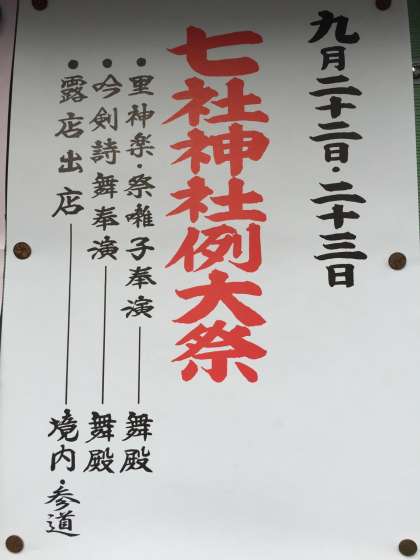 九月二十二日・二十三日
七社神社例大祭
●里神楽・祭囃子奉演──舞殿
●吟剣詩舞奉演──舞殿
●露店出店──境内・参道